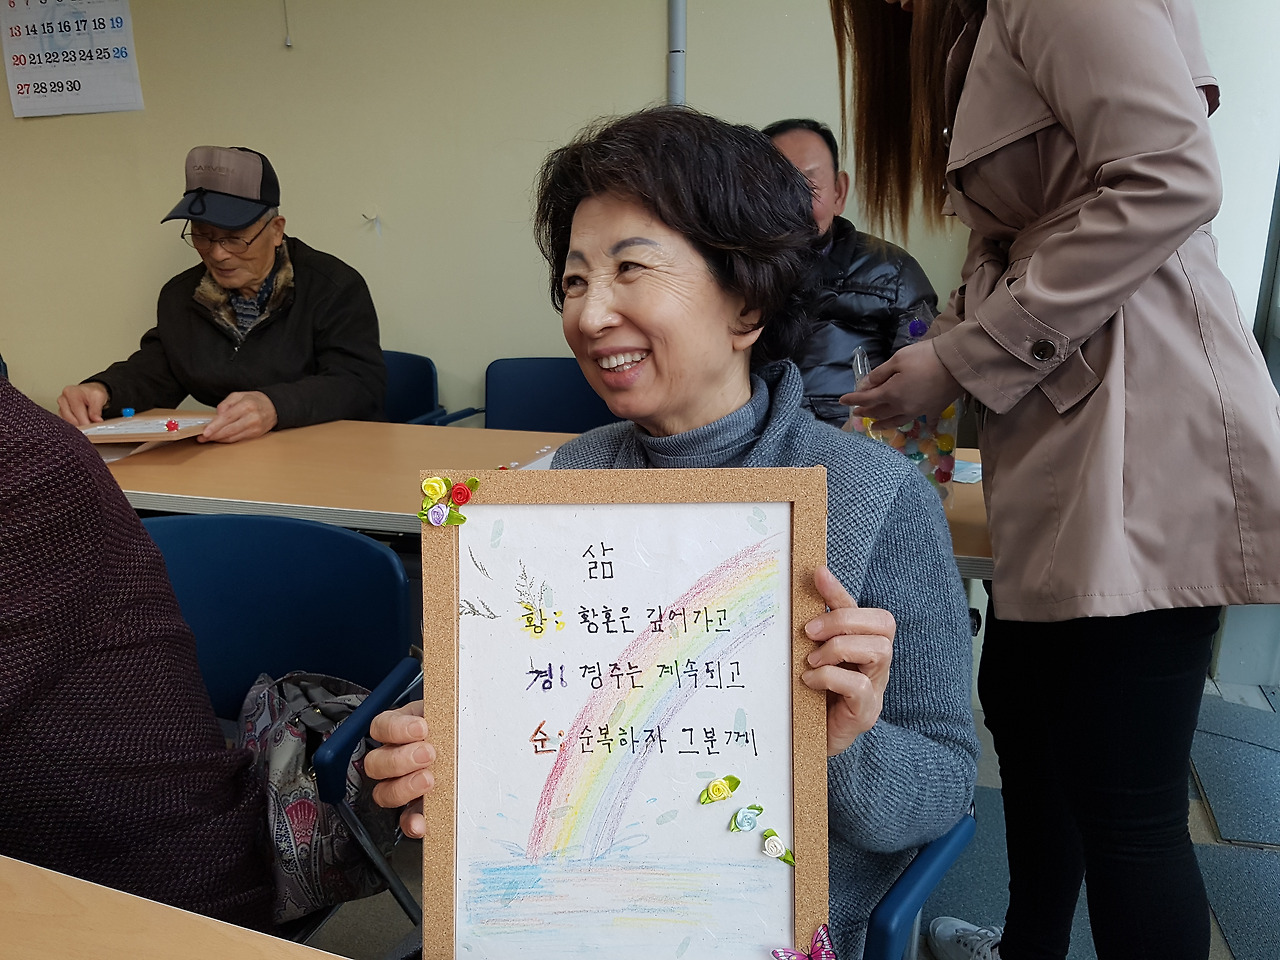 6 7 8 9 10 11 12
13 14 15 16 17 18 19
20 21 22 23 24 25 26
27 28 29 30
삶
황: 황혼은 깊어가고
경: 경주는 계속되고
순: 순복하자 그분께